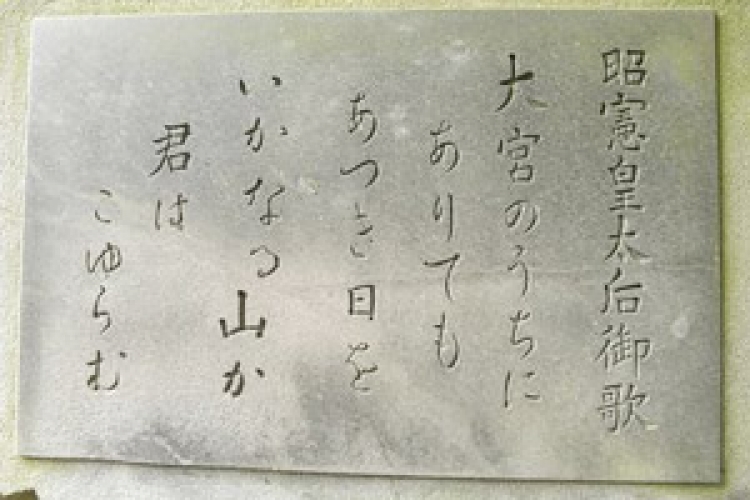 昭憲皇太后御歌
大宮のうちに
ありても
あつき日を
いかなる山か
君は
こゆらむ